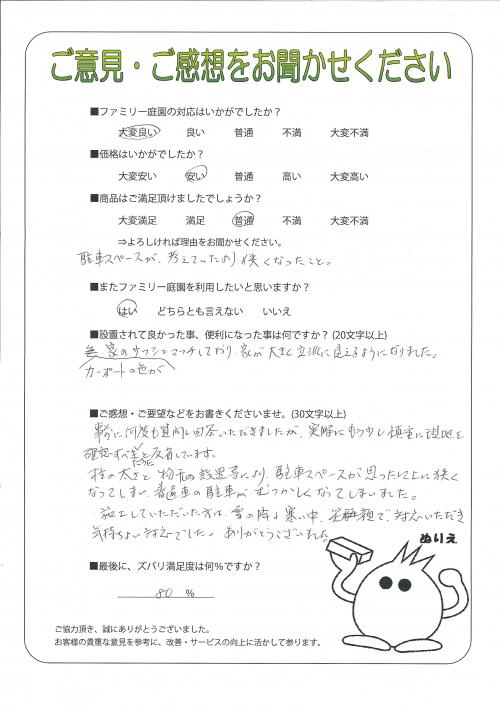 ご意見・ご感想をお聞かせください
■ファミリー庭園の対応はいかがでしたか？
大変良い 良い 普通 不満 大変不満
■価格はいかがでしたか？
大変安い 安い 普通 高い 大変高い
■商品はご満足頂けましたでしょうか？
大変満足 満足 普通 不満 大変不満
⇒よろしければ理由をお聞かせください。
駐車スペースが、考えていたより狭くなったこと。
■またファミリー庭園を利用したいと思いますか？
はい どちらとも言えない いいえ
■設置されて良かった事、便利になった事は何ですか？(20文字以上)
家のサッシとマッチしており、家が大きく立派に見えるようになりました。
カーポートの色が
■ご感想・ご要望などをお書きくださいませ。(30文字以上)
事前に何度も質問し回答いただきましたが、実際にもう少し慎重に現地を
確認すべきだったと反省しています。
柱の太さと物置の設置等により、駐車スペースが思った以上に狭く
なってしまい、普通車の駐車がむつかしくなってしまいました。
施工していただいた方は、雪の降る寒い中、笑顔で対応いただき
気持ちよい対応でした。ありがとうございました。
ぬりえ
■最後に、ズバリ満足度は何％ですか？
80 %
ご協力頂き、誠にありがとうございました。
お客様の貴重な意見を参考に、改善・サービスの向上に活かして参ります。